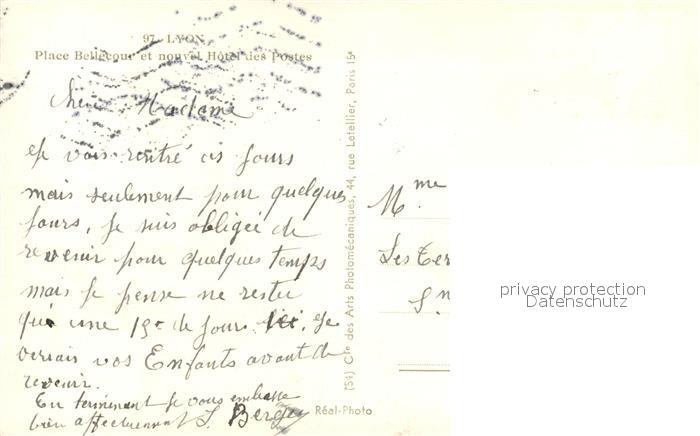 97. LYON
Place Bellecour et nouvel Hôtel des Postes
Chère Madame
Je vais rentré ces jours
mais seulement pour quelques
jours, je suis obligée de
revenir pour quelques temps
mais je pense ne rester
que une 15e de jours ici. Je
verrais vos Enfants avant de
revenir.
En terminant je vous embrasse
bien affectueusement S. Berger
(54) Cie des Arts Photomécaniques, 44, rue Letellier, Paris 15e
Réal-Photo
Mme
Les Ter
St
privacy protection
Datenschutz